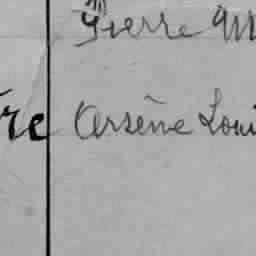 Pierre M
re Arsène Loui